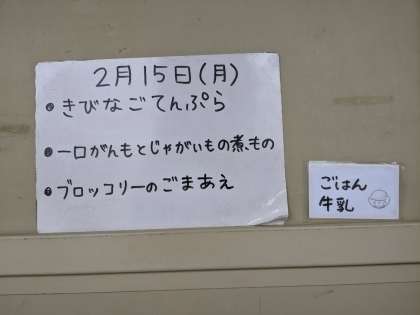 2月15日(月)
●きびなごてんぷら
●一口がんもとじゃがいもの煮もの
●ブロッコリーのごまあえ
ごはん
牛乳